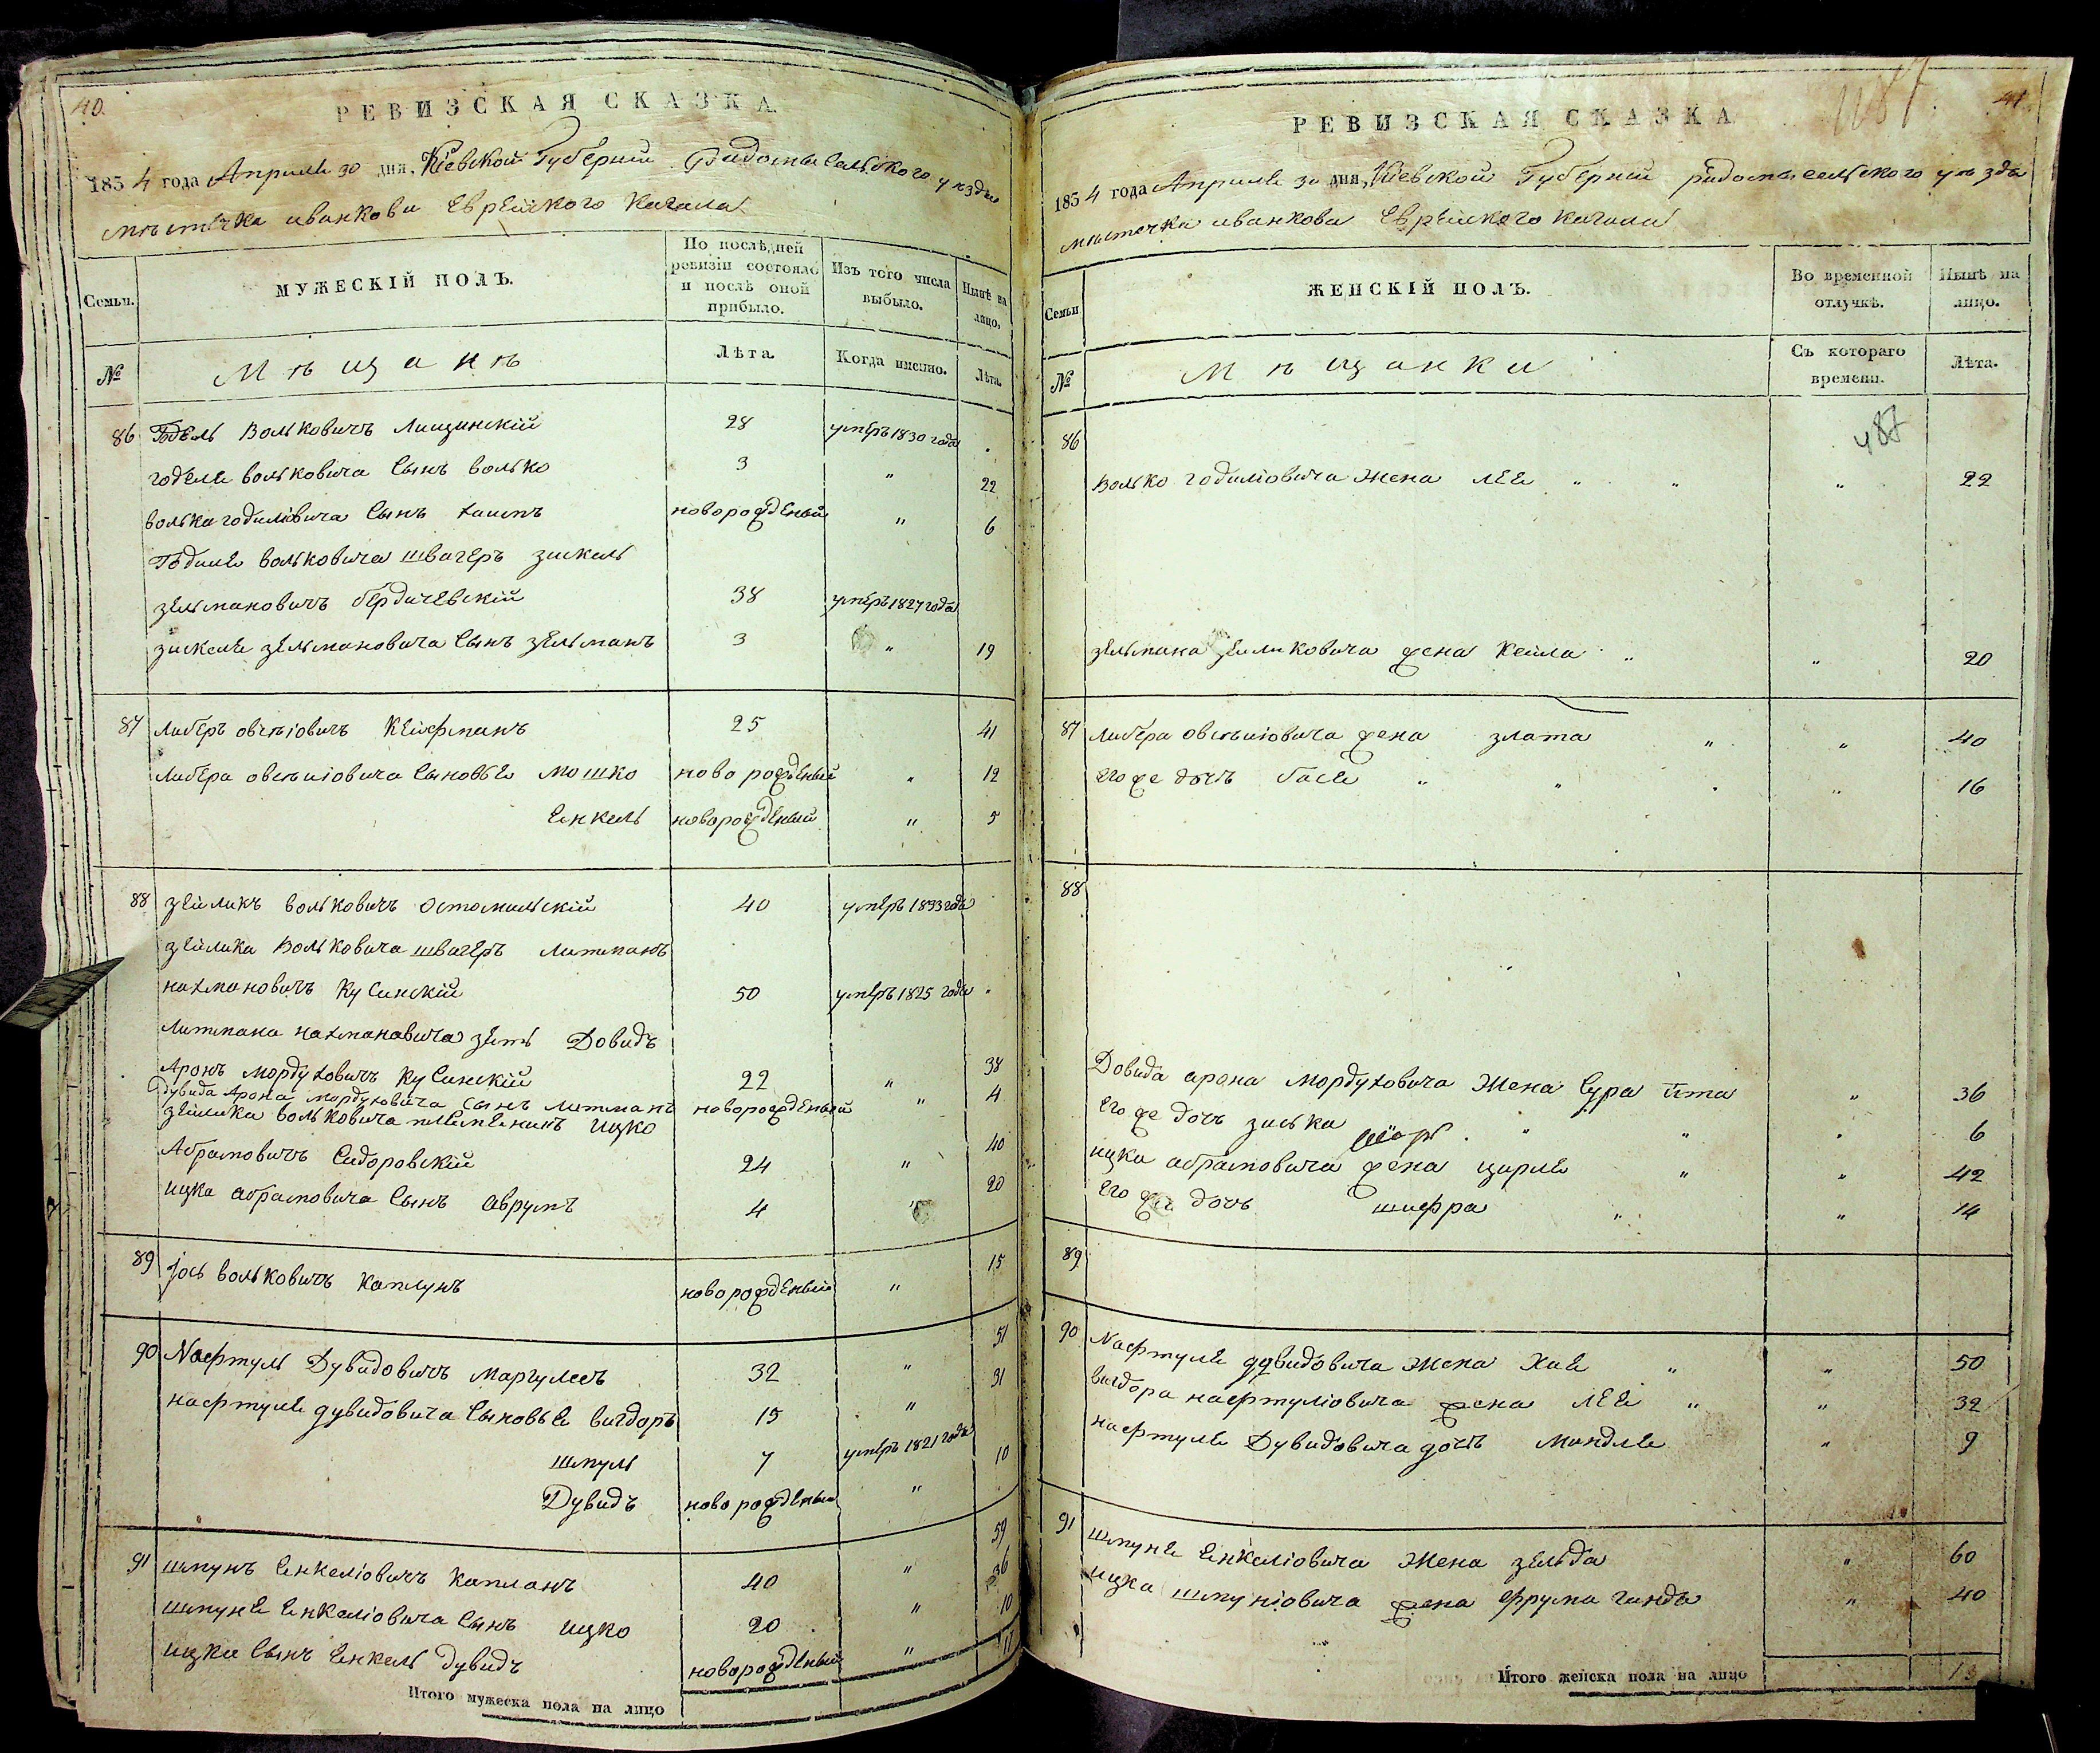 40.
РЕВИЗСКАЯ СКАЗКА
1834 года Апреля 30 дня, Кіевской Губерніи Радомысельского уѣзда
мѣстечка иванкова Еврейского Кагала
Семьи.
МУЖЕСКІЙ ПОЛЪ.
По послѣдней ревизіи состояло и послѣ оной прибыло.
Изъ того числа выбыло.
Нынѣ на лицо.
№
Мѣщанѣ
Лѣта.
Когда именно.
Лѣта.
86 Годель Вольковичъ Лищинскій 28 умеръ 1830 года
годеля вольковича Сынъ Волько 3 " 22
волька годиліовича Сынъ хаимъ новорожденый " 6
Годиля вольковича швагеръ зискель
зельмановичъ бердичевскій 38 умеръ 1827 года
зискеля зельмановича Сынъ зельманъ 3 " 19
87 либеръ овсѣіовичъ Кейфманъ 25 41
либера овсѣиіовича Сыновья мошко новорожденый " 12
Енкель новорожденый " 5
88 зейликъ вольковичъ остомильскій 40 умеръ 1833 года
зейлика Вольковича швагеръ литманъ
нахмановичъ Кусинскій 50 умеръ 1825 года
литмана нахмановича зять Довидъ
Аронъ мордуховичъ Кусинскій 22 " 38
Дувида Арона мордуховича сынъ литманъ новорожденый " 4
зейлика вольковича племеникъ ицко
Абрамовичъ Сидоровскій 24 " 40
ицка абрамовича Сынъ аврумъ 4 " 20
89 Іось вольковичъ Каплунъ новорожденый " 15
90 Нафтуль Дувидовичъ маргулесъ 32 " 51
нафтуля дувидовича Сыновья вигдоръ 15 " 31
шмуль 7 умеръ 1821 года
Дувидъ новорожденый " 10
91 шмунъ Енкеліовичъ Капланъ 40 " 59
шмуня Енкеліовича Сынъ ицко 20 " 36
ицка Сынъ Енкель дувидъ новорожденый " 10
Итого мужеска пола на лицо 17
41
РЕВИЗСКАЯ СКАЗКА
1834 года Апреля 30 дня, Кіевской Губерніи радомысельского уѣзда
мѣстечка иванкова Еврейского Кагала
Семьи
ЖЕНСКІЙ ПОЛЪ.
Во временной отлучкѣ.
Нынѣ на лицо.
№
Мѣщанки
Съ котораго времени.
Лѣта.
487
86
Волько годиліовича Жена лея " " " 22
зельмана зискковича жена Кейла " " 20
87 либера овсѣиіовича жена злата " " 40
его же дочь бася " " " " 16
88
Довида арона мордуховича Жена Сура ита " 36
его же дочь зиська " " " 6
ицка абрамовича жена цирля " " 42
его же дочь шифра " " 14
89
90 Нафтуля дувидовича Жена Хая " " 50
вигдора нафтуліовича жена лея " " 32
нафтуля Дувидовича дочь миндля " 9
91 шмуня Енкеліовича Жена зельда " 60
ицка шмуніовича жена фрума гинда " 40
Итого женска пола на лицо 13